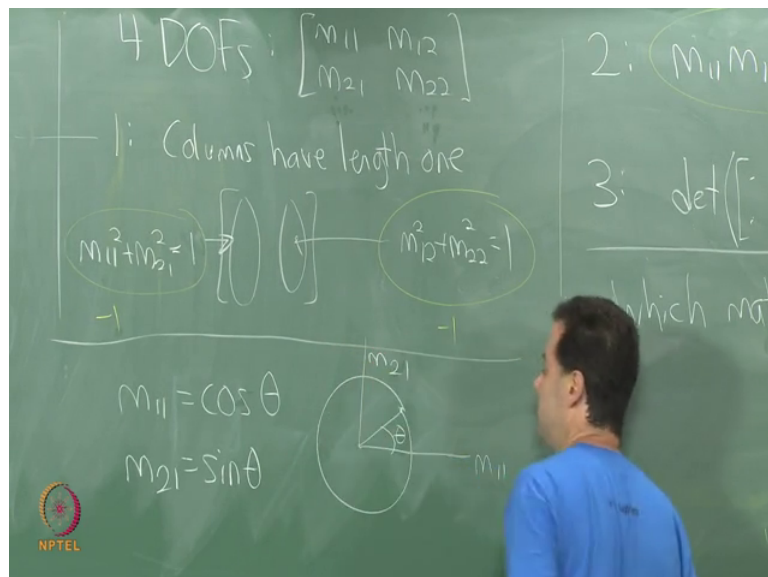 4 DOFs: [m11 m12
m21 m22]
1: Columns have length one
m11² + m21² = 1
m12² + m22² = 1
-1
-1
m11 = cos θ
m21 = sin θ
m21
θ
m11
2: m11 m1
3: det([
which ma
NPTEL